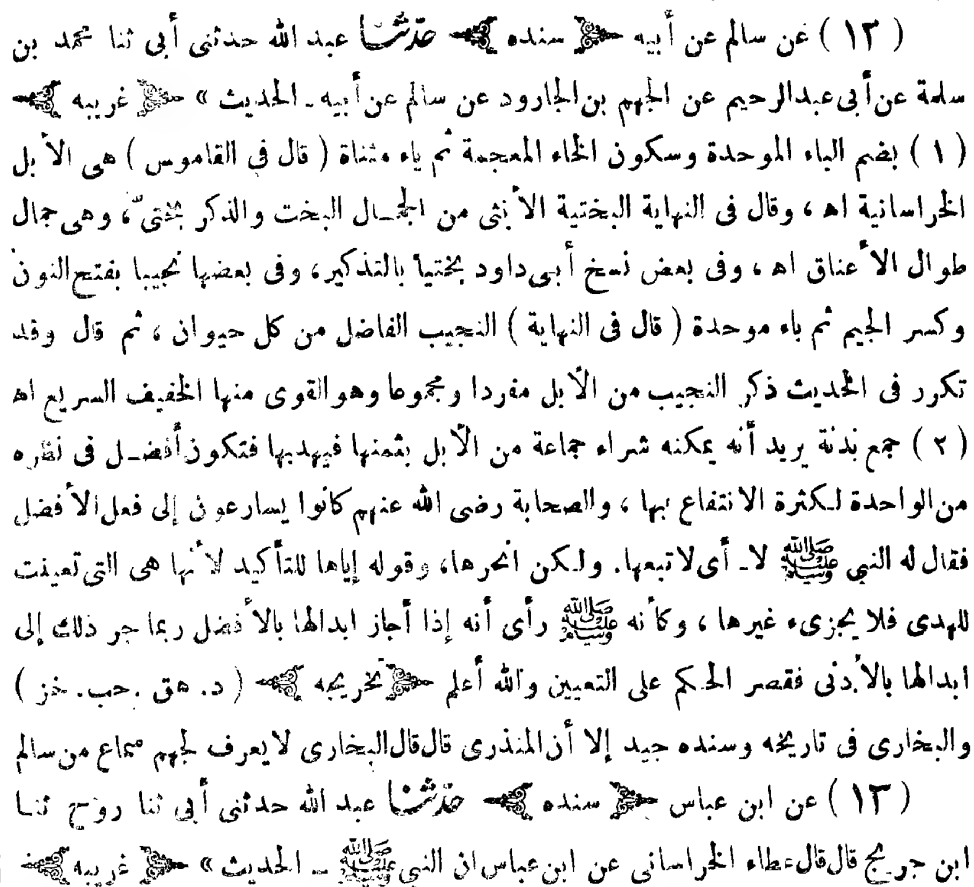 ( ١٢ ) عن سالم عن أبيه ﴿ سنده ﴾ حدثنا عبد الله حدثنى أبى ثنا محمد بن
سلمة عن أبى عبد الرحيم عن الجهم بن الجارود عن سالم عن أبيه ـ الحديث » ﴿ غريبه ﴾
( ١ ) بضم الباء الموحدة وسكون الخاء المعجمة ثم ياء مثناة ( قال فى القاموس ) هى الأبل
الخراسانية اه ، وقال فى النهاية البختية الأنثى من الجمال البخت والذكر بختىّ ، وهى جمال
طوال الأعناق اه ، وفى بعض نسخ أبى داود بختيا بالتذكير ، وفى بعضها نجيبا بفتح النون
وكسر الجيم ثم باء موحدة ( قال فى النهاية ) النجيب الفاضل من كل حيوان ، ثم قال وقد
تكرر فى الحديث ذكر النجيب من الأبل مفردا ومجموعا وهو القوى منها الخفيف السريع اه
( ٢ ) جمع بدنة يريد أنه يمكنه شراء جماعة من الأبل بثمنها فيهديها فتكون أفضل فى نظره
من الواحدة لكثرة الانتفاع بها ، والصحابة رضى الله عنهم كانوا يسارعون إلى فعل الأفضل
فقال له النبى ﷺ لا ـ أى لا تبعها. ولكن انحرها، وقوله إياها للتأكيد لأنها هى التى تعينت
للهدى فلا يجزىء غيرها ، وكأنه ﷺ رأى أنه إذا أجاز ابدالها بالأفضل ربما جر ذلك إلى
ابدالها بالأدنى فقصر الحكم على التعيين والله أعلم ﴿ تخريجه ﴾ ( د. هق .حب. خز )
والبخارى فى تاريخه وسنده جيد إلا أن المنذرى قال قال البخارى لا يعرف لجهم سماع من سالم
( ١٣ ) عن ابن عباس ﴿ سنده ﴾ حدثنا عبد الله حدثنى أبى ثنا روح ثنا
ابن جريج قال قال عطاء الخراسانى عن ابن عباس ان النبى ﷺ ـ الحديث » ﴿ غريبه ﴾